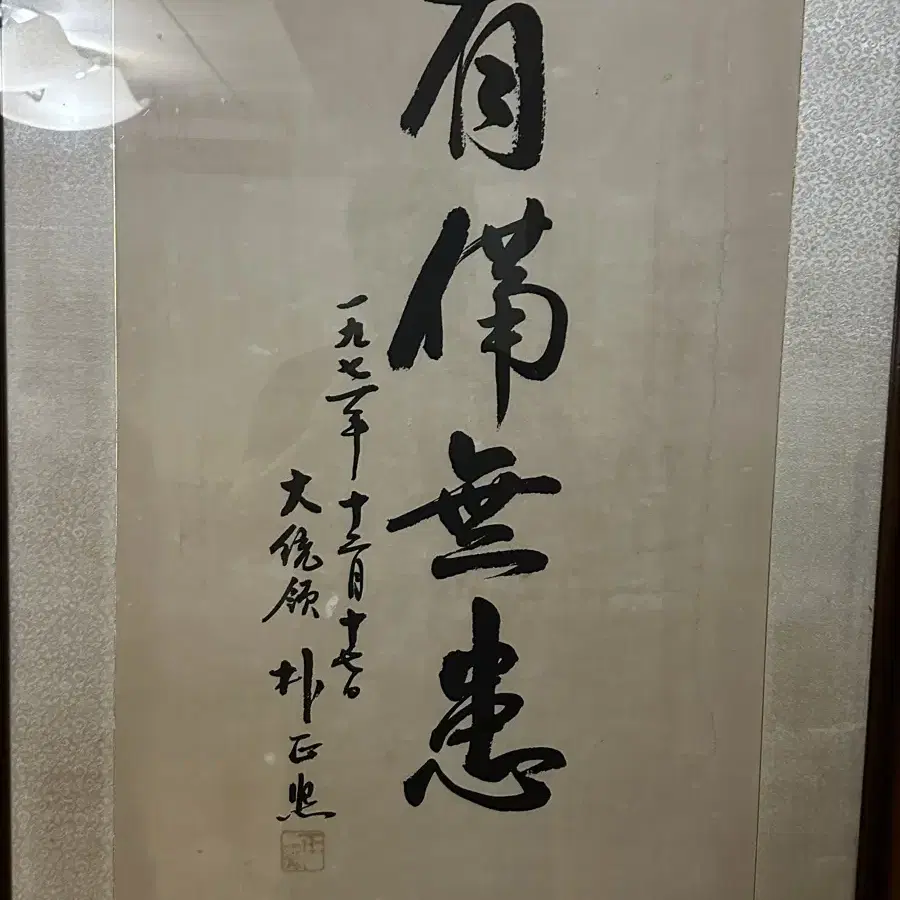 有備無患
一九七一年 十二月十七日
大統領 朴正熙